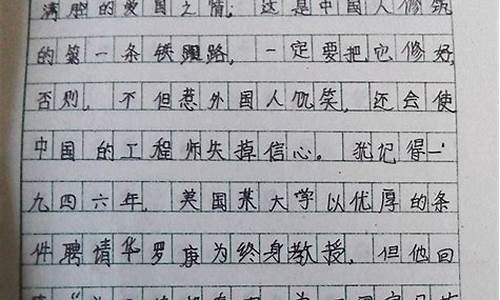 满腔的爱国之情；这是中国人修筑
的第一条铁路，一定要把它修好，
否则，不但惹外国人讥笑，还会使
中国的工程师失掉信心。犹记得一
九四六年，美国某大学以优厚的条
件聘请华罗庚为终身教授，但他回